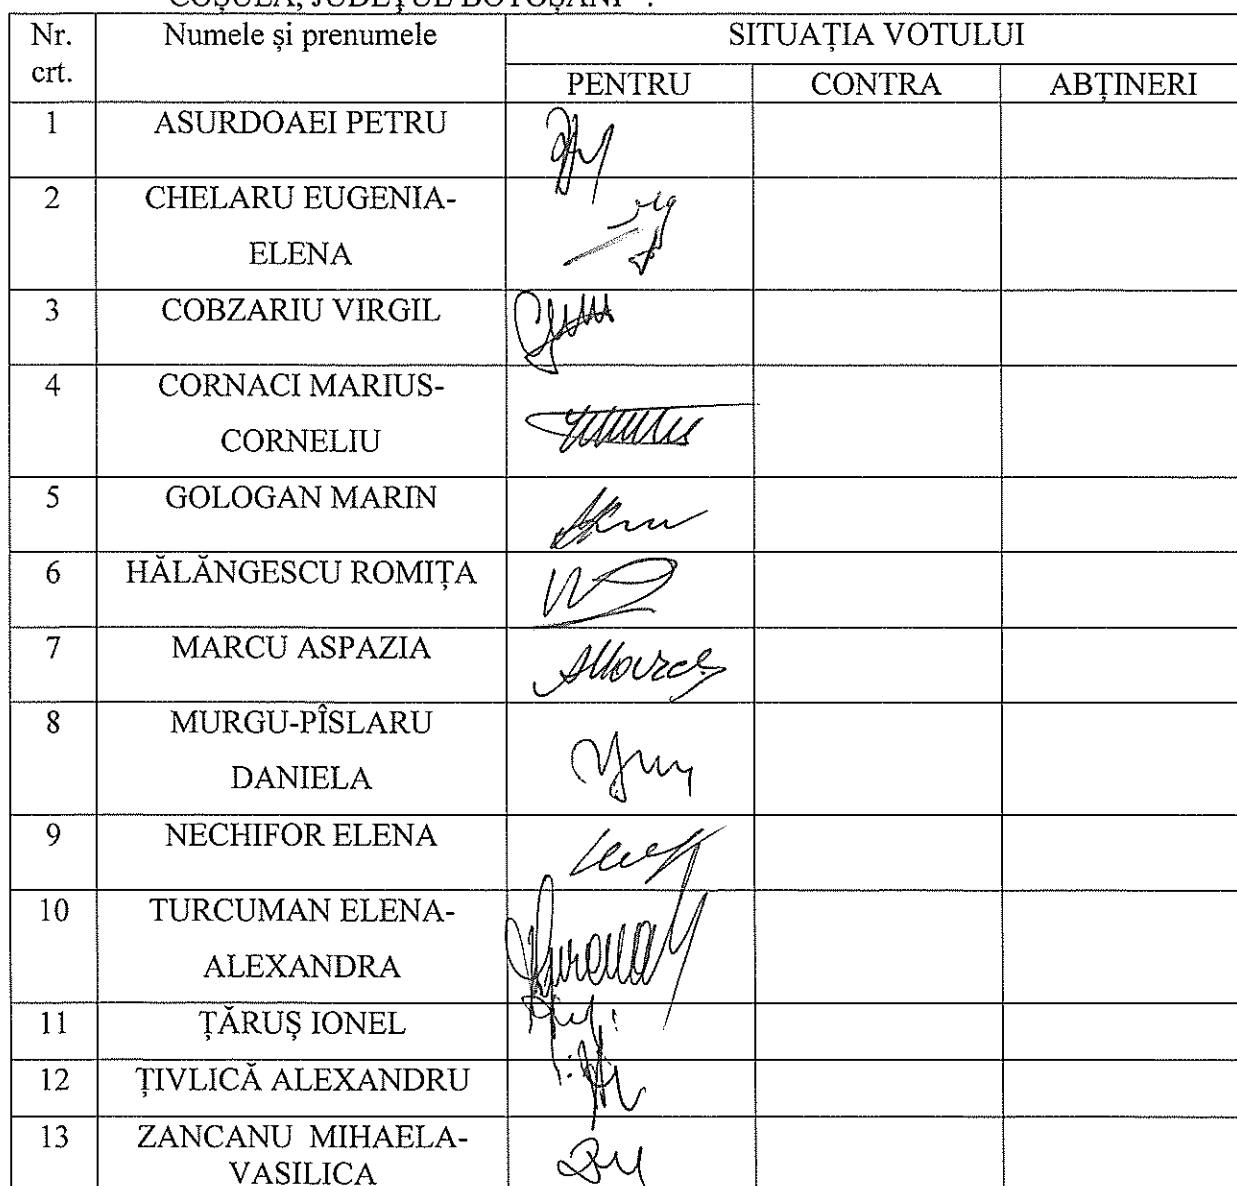 COȘULA, JUDEȚUL BOTOȘANI " .
Nr. crt. Numele și prenumele SITUAȚIA VOTULUI
PENTRU CONTRA ABȚINERI
1 ASURDOAEI PETRU
2 CHELARU EUGENIA-
ELENA
3 COBZARIU VIRGIL
4 CORNACI MARIUS-
CORNELIU
5 GOLOGAN MARIN
6 HĂLĂNGESCU ROMIȚA
7 MARCU ASPAZIA
8 MURGU-PÎSLARU
DANIELA
9 NECHIFOR ELENA
10 TURCUMAN ELENA-
ALEXANDRA
11 ȚĂRUȘ IONEL
12 ȚIVLICĂ ALEXANDRU
13 ZANCANU MIHAELA-
VASILICA